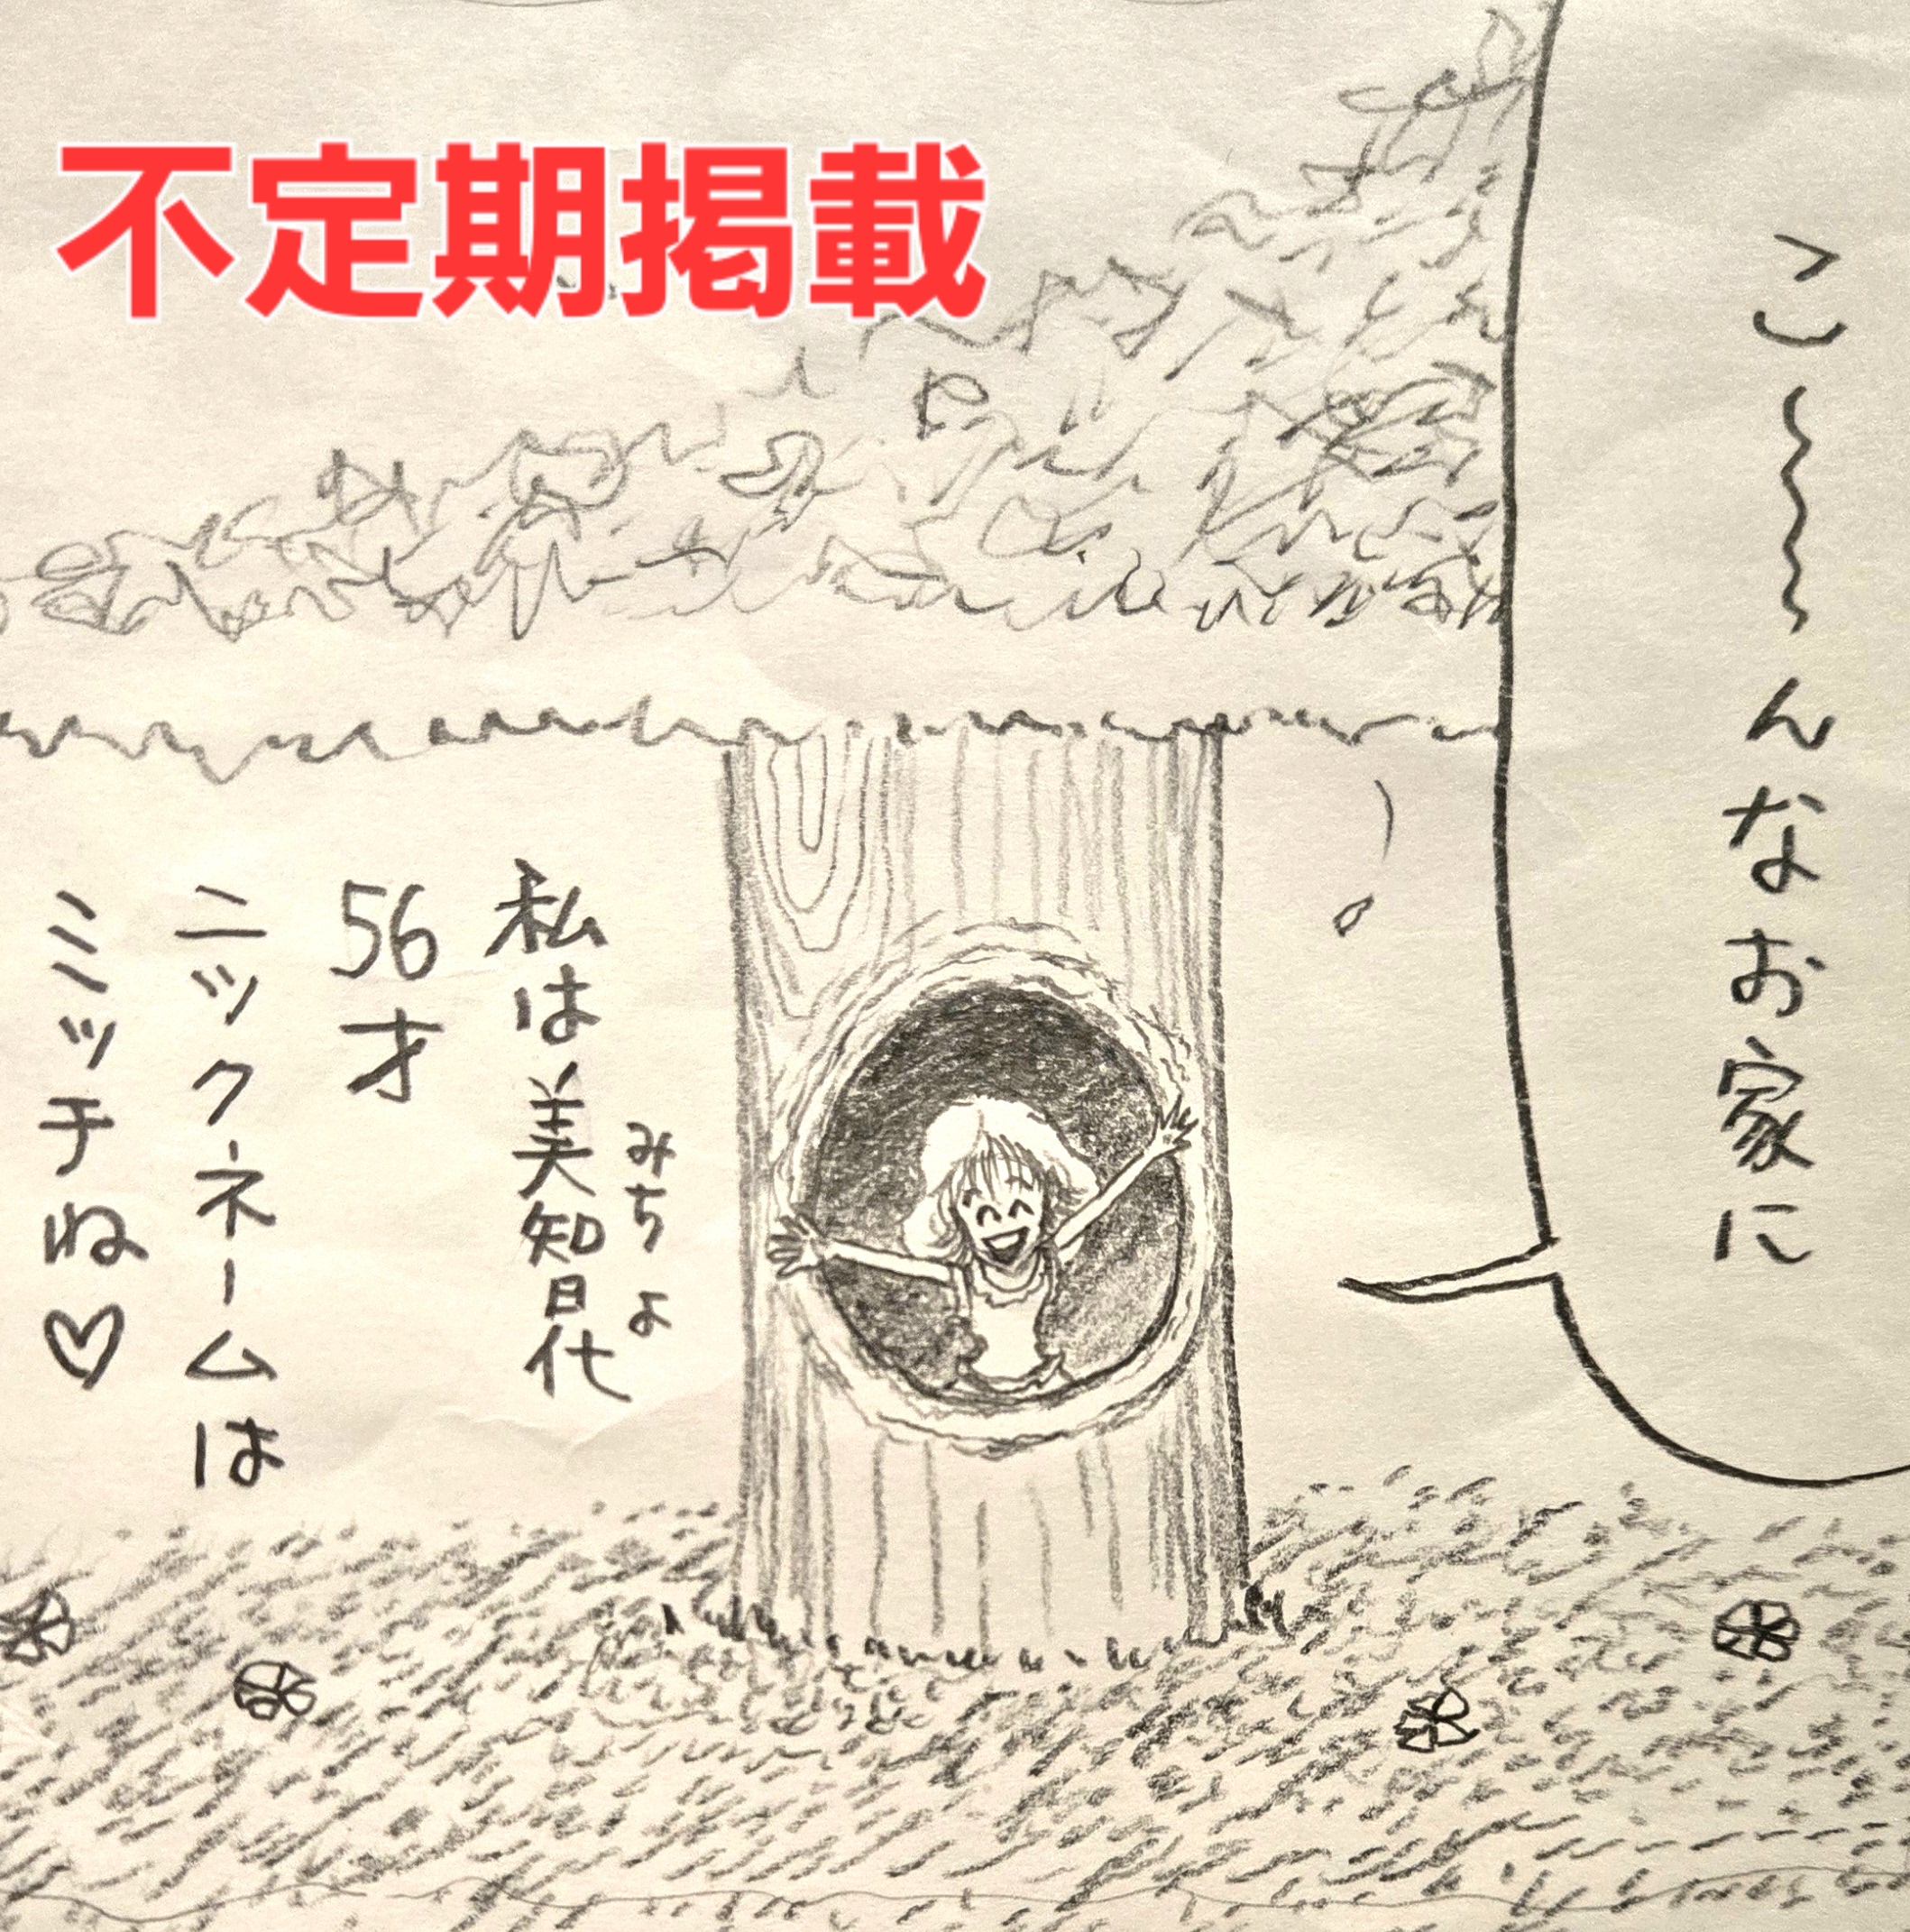 不定期掲載
こ〜んなお家に
私は美智代
みちよ
56才
ニックネームは
ミッチね♡